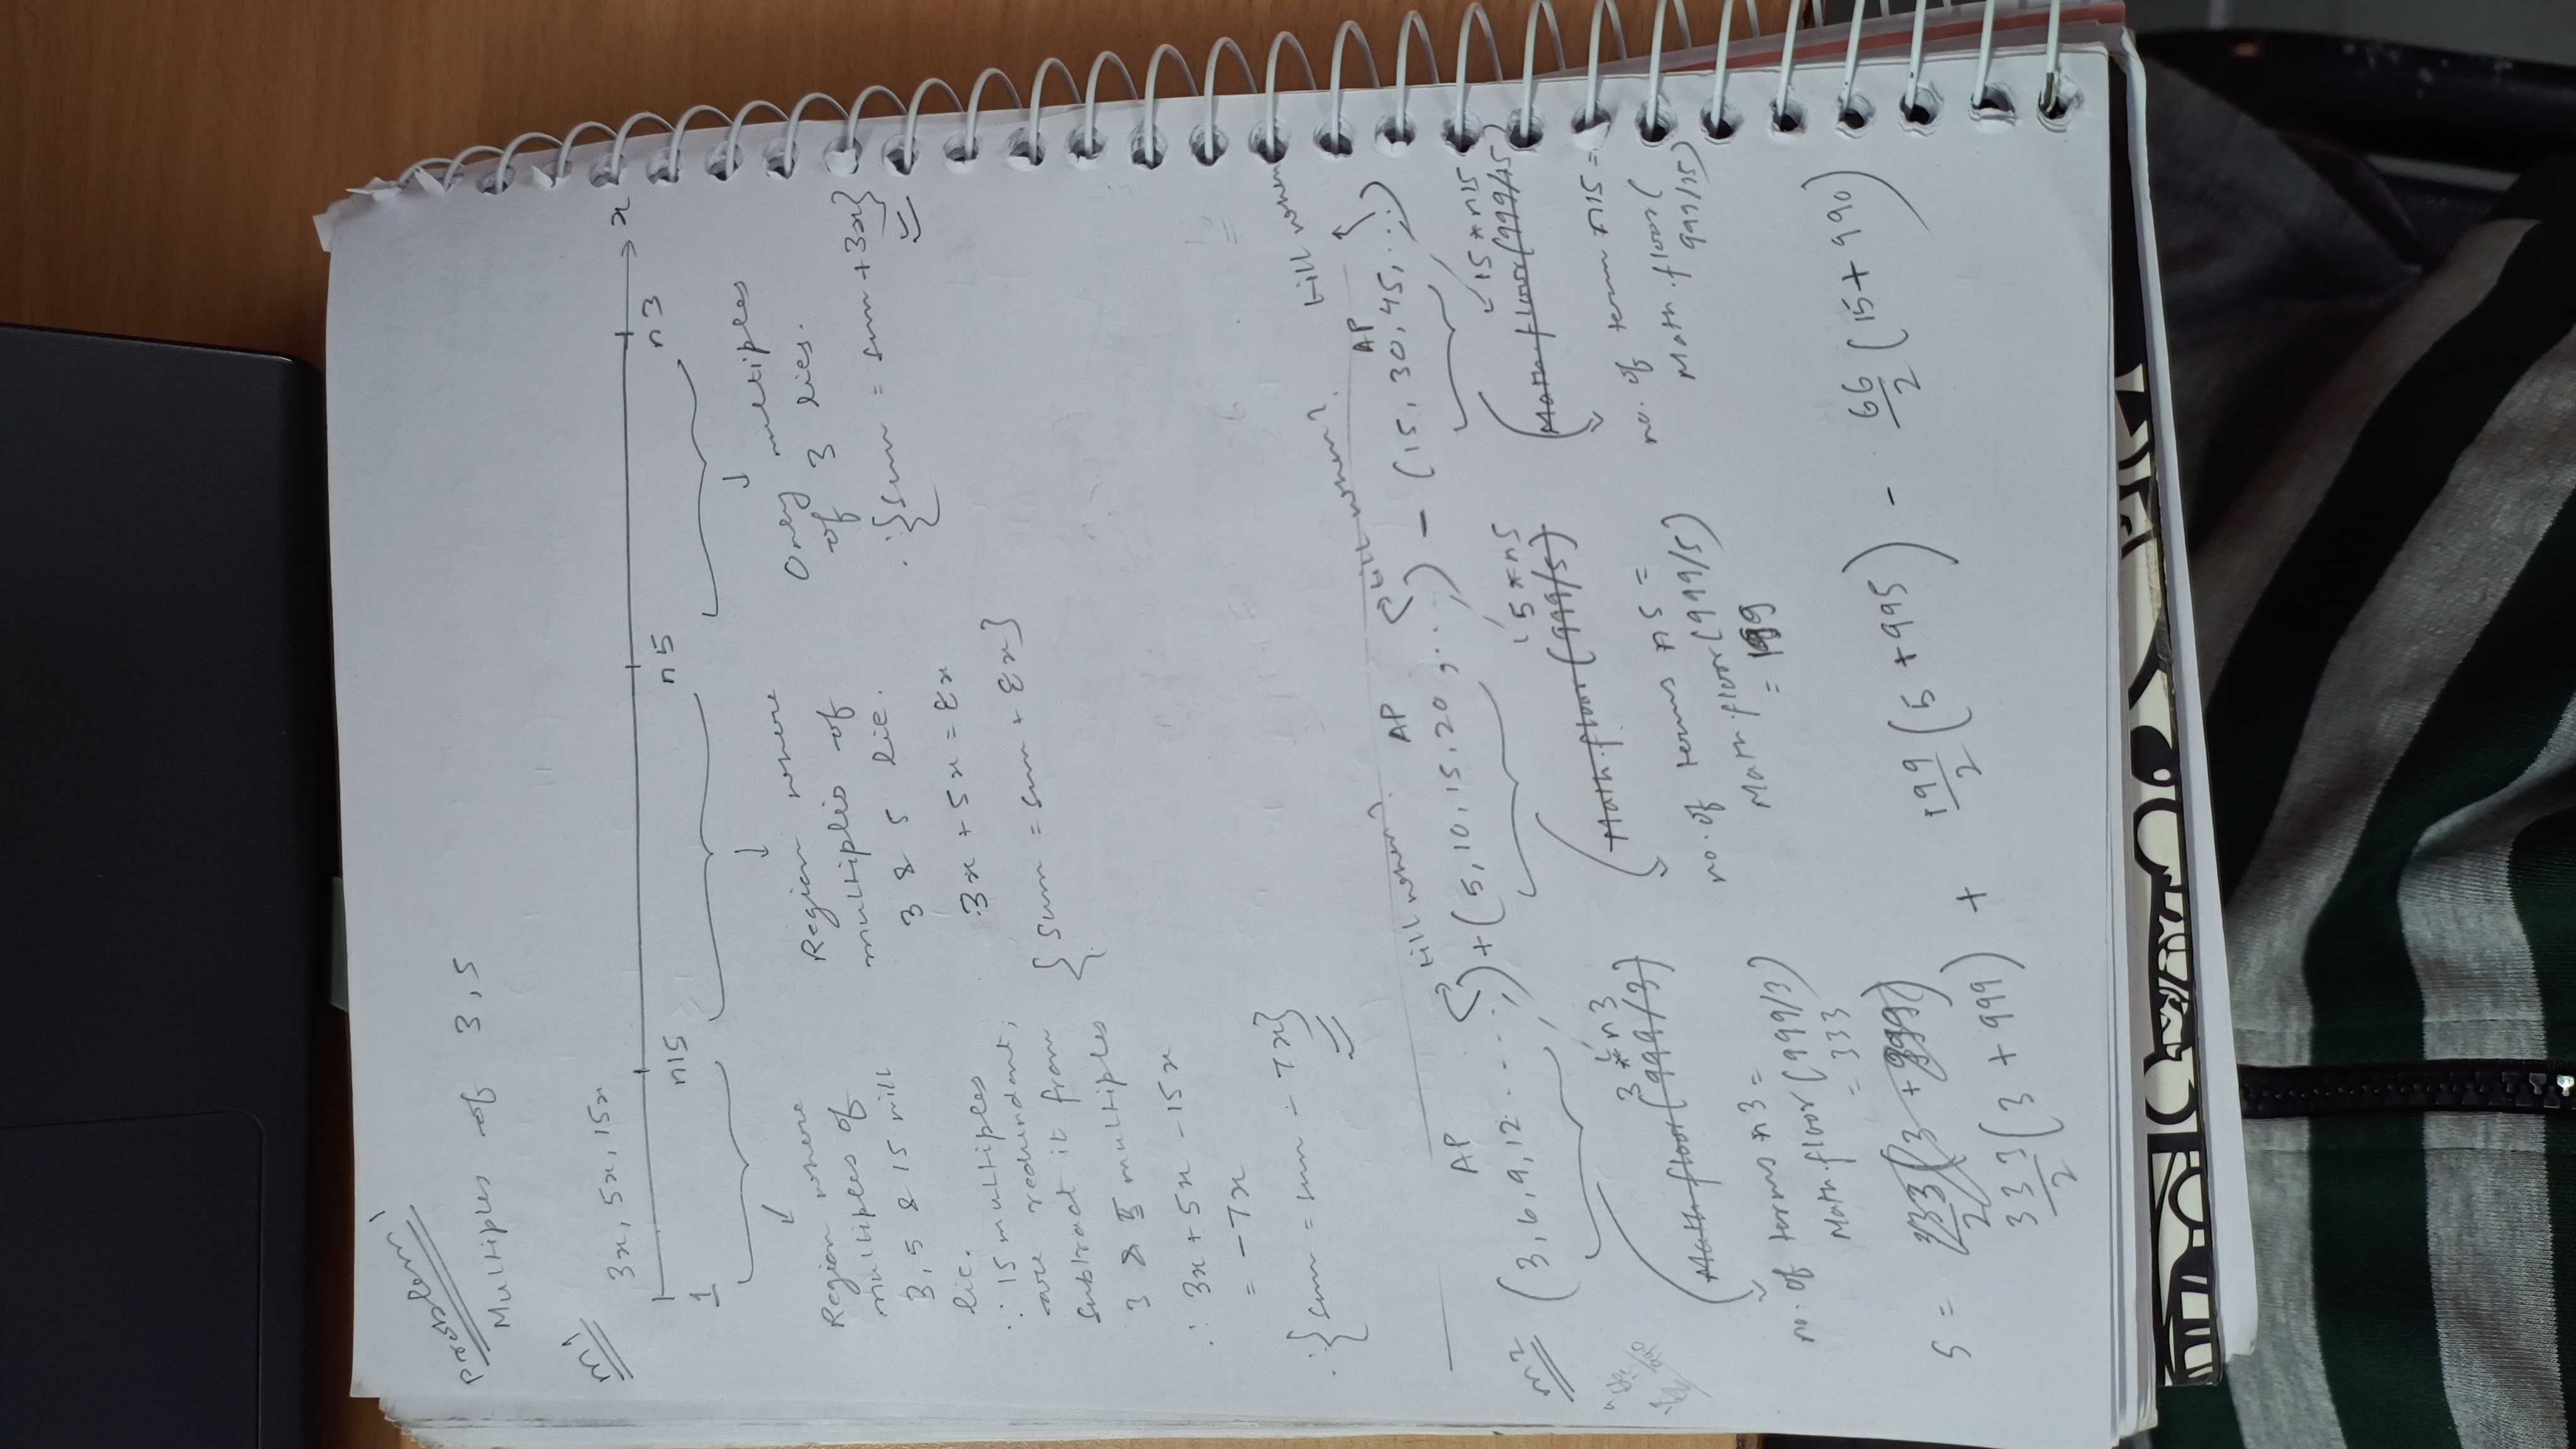 Problem 1
Multiples of 3, 5
m1
3x, 5x, 15x
1 n15 n5 n3 x
Region where
multiples of
3, 5 & 15 will
lie.
∵ 15 multiples
are redundant,
subtract it from
3 & 5 multiples
∴ 3x + 5x - 15x
= -7x
∴ {sum = sum - 7x}
Region where
multiples of
3 & 5 lie.
3x + 5x = 8x
{sum = sum + 8x}
Only multiples
of 3 lies.
∴ {sum = sum + 3x}
m2
AP till when? AP till when? AP till when
(3, 6, 9, 12 .....) + (5, 10, 15, 20, ....) - (15, 30, 45, ...)
3 * n3
Math.floor(999/3)
no. of terms n3 =
Math.floor(999/3)
= 333
5 * n5
Math.floor(999/5)
no. of terms n5 =
Math.floor(999/5)
= 199
15 * n15
Math.floor(999/15)
no. of term n15 =
Math.floor(
999/15)
S = 333/2 (3 + 999)
333/2 (3 + 999) + 199/2 (5 + 995) - 66/2 (15 + 990)